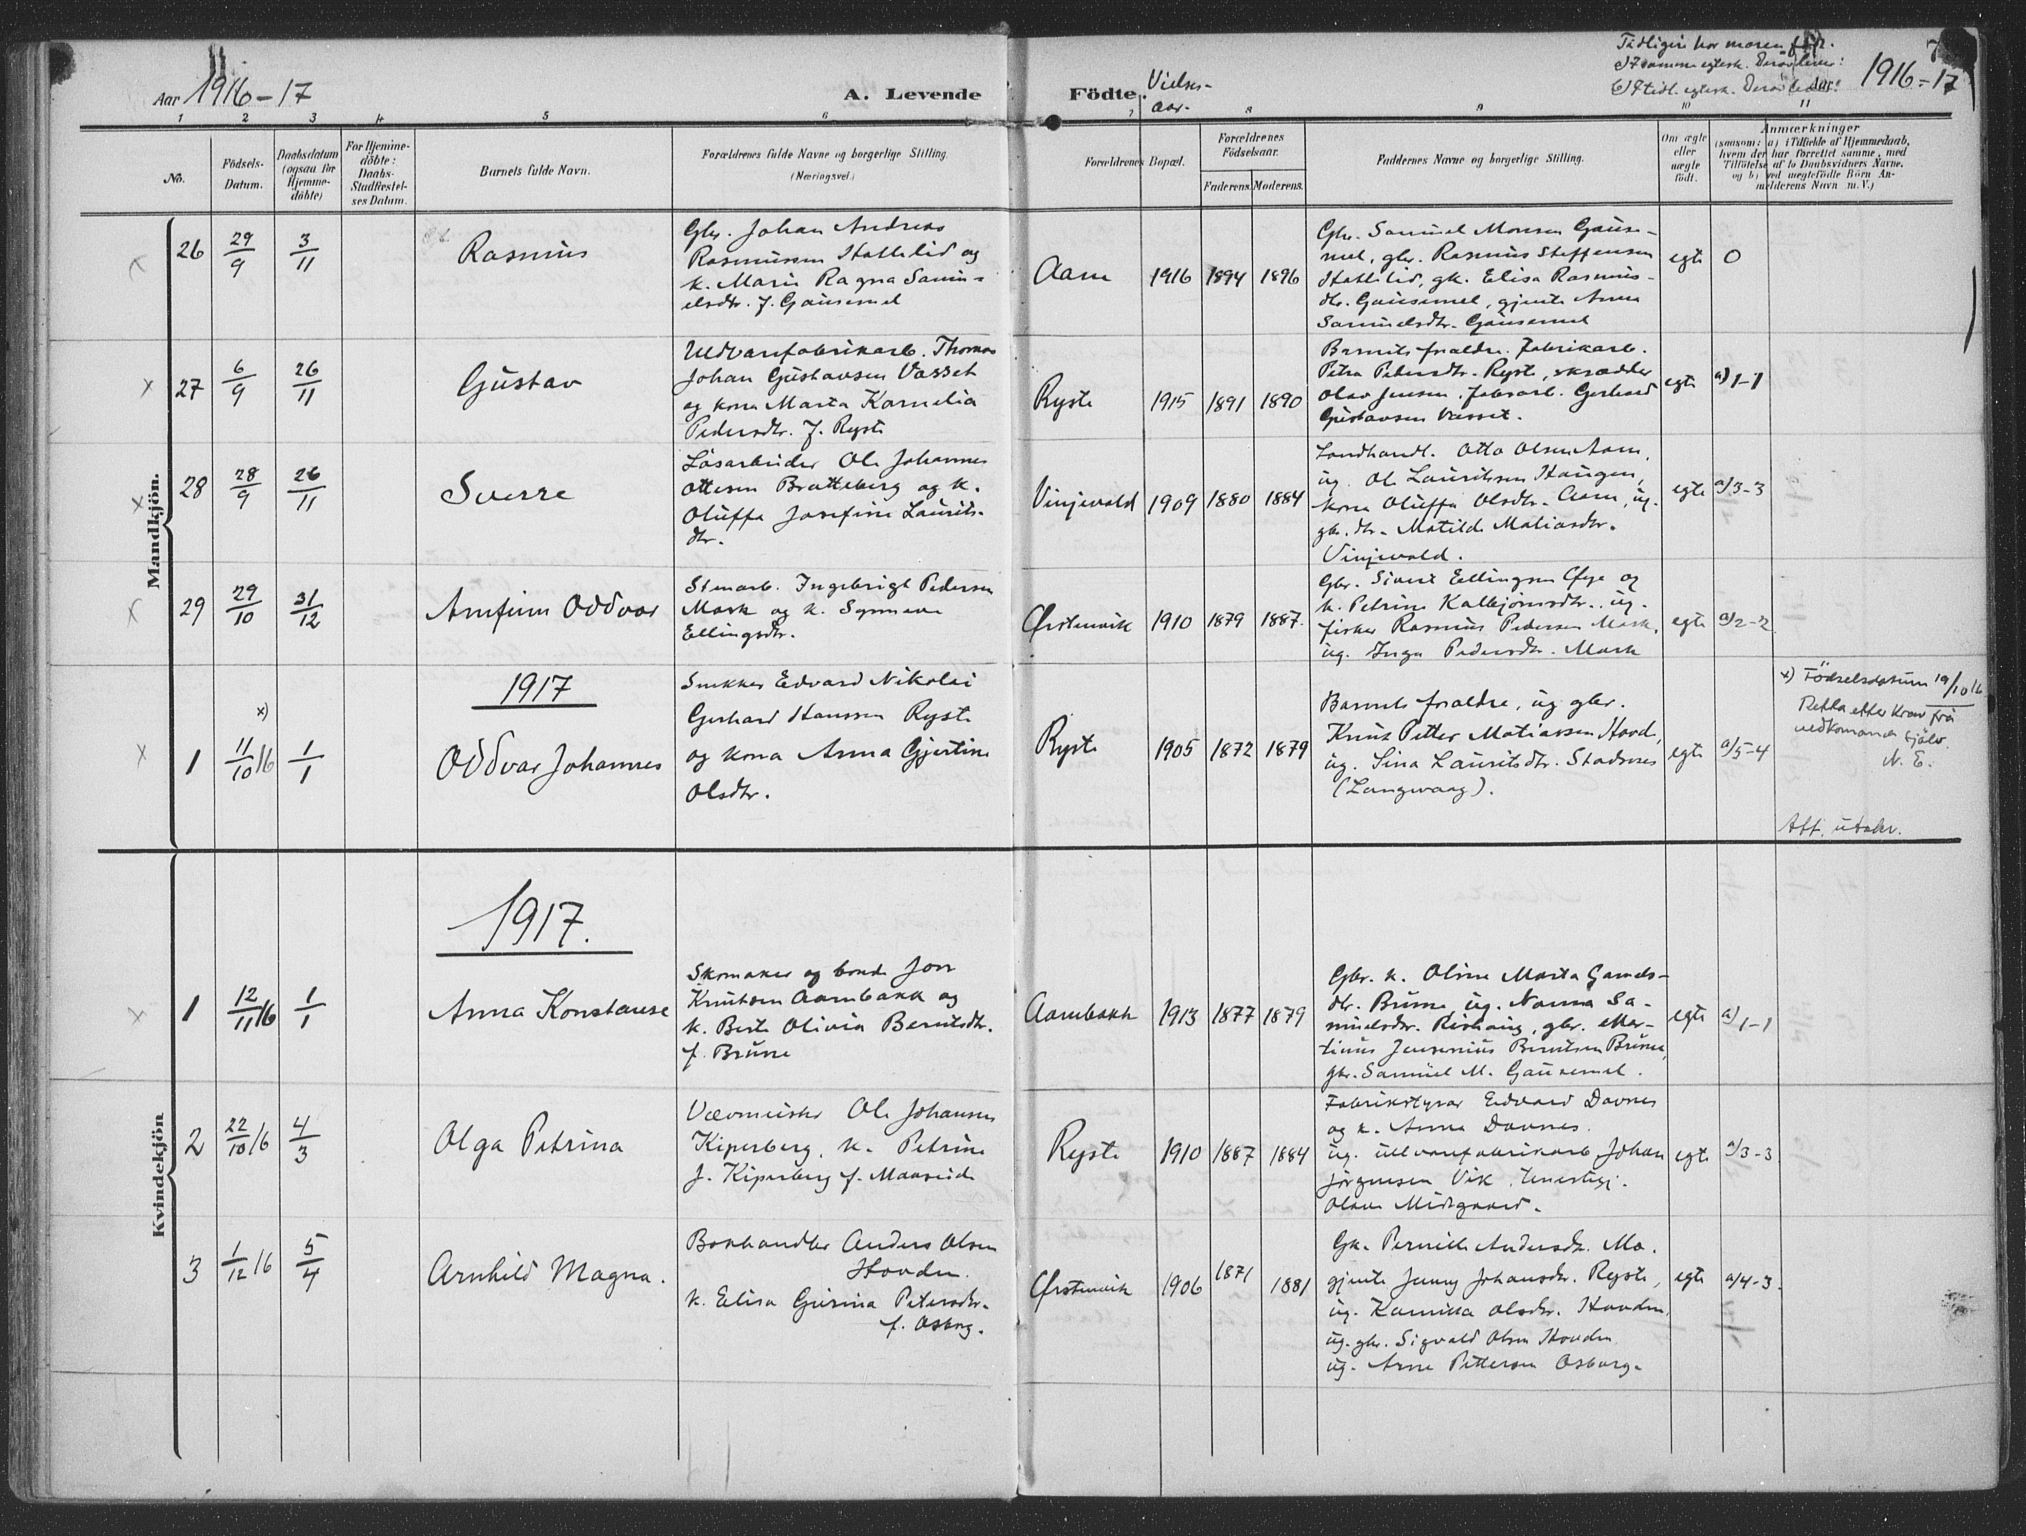 Aar 1916-17
A. Levende
Födte.
Vielses-
aar.
1916-17
7
1 2 3 4 5 6
7 8 9 10 11
No.
Födsels-
Datum.
Daabsdatum
(ogsaa for
Hjemme-
döbte)
For Hjemme-
döbte:
Daabs-
Stadfæstel-
ses Datum.
Barnets fulde Navn.
Forældrenes fulde Navne og borgerlige Stilling.
(Næringsvei.)
Forældrenes Bopæl.
Forældrenes
Födselsaar.
Faderens. Moderens.
Faddernes Navne og borgerlige Stilling.
Om ægte
eller
uægte
födt.
Anmærkninger
(saasom: a) i Tilfælde af Hjemmedaab,
hvem der har forrettet samme, med
Tilföielse af to Daabsvidners Navne,
og b) ved uægtefödte Börn An-
melderens Navn m. V.)
Mandkjön.
26
29/9
3/11
Rasmus
Gbr. Johan Andreas
Rasmussen Hattelid og
k. Marie Ragna Samu-
elsdtr. f. Gausemel
Aam
1916
1894
1896
Gbr. Samuel Monsen Gause-
mel, gbr. Rasmus Steffensen
Hattelid, gk. Elisa Rasmus-
dtr. Gausemel, gjente Anna
Samuelsdtr. Gausemel
egte
0
27
6/9
26/11
Gustav
Uldvarefabrikarb. Thomas
Johan Gustavsen Vasset
og kona Marta Kornelia
Pedersdtr. f. Ryste
Ryste
1915
1891
1890
Barnets foraldre. Fabrikarb.
Petra Pedersdtr. Ryste, skrædder
Olav Jensen, fabarb. Gerhard
Gustavsen Vasset.
egte
a) 1-1
28
28/9
26/11
Sverre
Lösarbeider Ole Johannes
Ottesen Bratteberg og k.
Oluffa Josefine Laurits-
dtr.
Vinjevold
1909
1880
1884
Landhandl. Otto Olsen Aam,
ug. Ole Lauritsen Haugen,
kona Oluffa Olsdtr. Aam, ug.
gbr. dtr. Matilde Matiasdtr.
Vinjevold.
egte
a/3-3
29
29/10
31/12
Arnfinn Oddvar
Stenarb. Ingebrigt Pedersen
Mork og k. Synneve
Ellingsdtr.
Ørstenvik
1910
1879
1887.
Gbr. Sivert Ellingsen Øye og
k. Petrine Kolbjörnsdtr., ug.
fisker Rasmus Pedersen Mork,
ug. Inga Pedersdtr. Mork
egte
a/2-2
1917
x)
1
11/10 16
1/1
Oddvar Johannes
Snekker Edvard Nikolai
Gerhard Hanssen Ryste
og kona Anna Gjertine
Olsdtr.
Ryste
1905
1872
1879
Barnets foraldre, ug gbr.
Knut Petter Matiassen Hovde,
ug. Sina Lauritsdtr. Stadsnes
(Langevaag).
egte
a/5-4
x) Födselsdatum 19/10 16
Retta etter krav frå
vedkomande sjölv.
N. E.
Att. utskr.
Kvindekjön
1917.
1
12/11 16
1/1
Anna Konstanse
Skomaker og bonde Jon
Knutsen Aambakk og
k. Berte Olivia Berntsdtr.
f. Brune
Aambakk
1913
1877
1879
Gbr. k. Oline Marta
dtr. Brune, ug. Nanna Sa-
muelsdtr. gbr. Mar-
tinus Jensenius Berntsen Brune,
gbr. Samuel M. Gausemel.
egte
a/1-1
2
22/10 16
4/3
Olga Petrina
Vævmester Ole Johansen
Kiperberg, k. Petrine
J. Kiperberg f. Maaseide
Ryste
1910
1887
1884
Fabrikstyrar Edvard Davnes
og k. Anna Davnes.
ug. ullvarefabrikarb. Johan
Jörgensen Vik,
Olava Midtgaard.
egte
a/3-3
3
1/12 16
5/4
Arnhild Magna.
Bokhandler Anders Olsen
Hovden.
k. Elisa Gurina Petersdtr.
f. Osborg.
Ørstenvik
1906
1871
1881
Gk. Pernille Andersdtr. Mo.
gjente Jenny Johansdtr. Ryste,
ug. Kamilla Olsdtr. Hovden,
ug. gbr. Sigvald Olsen Hovden
ug. Arne Pettersen Osborg.
egte
a/4-3.